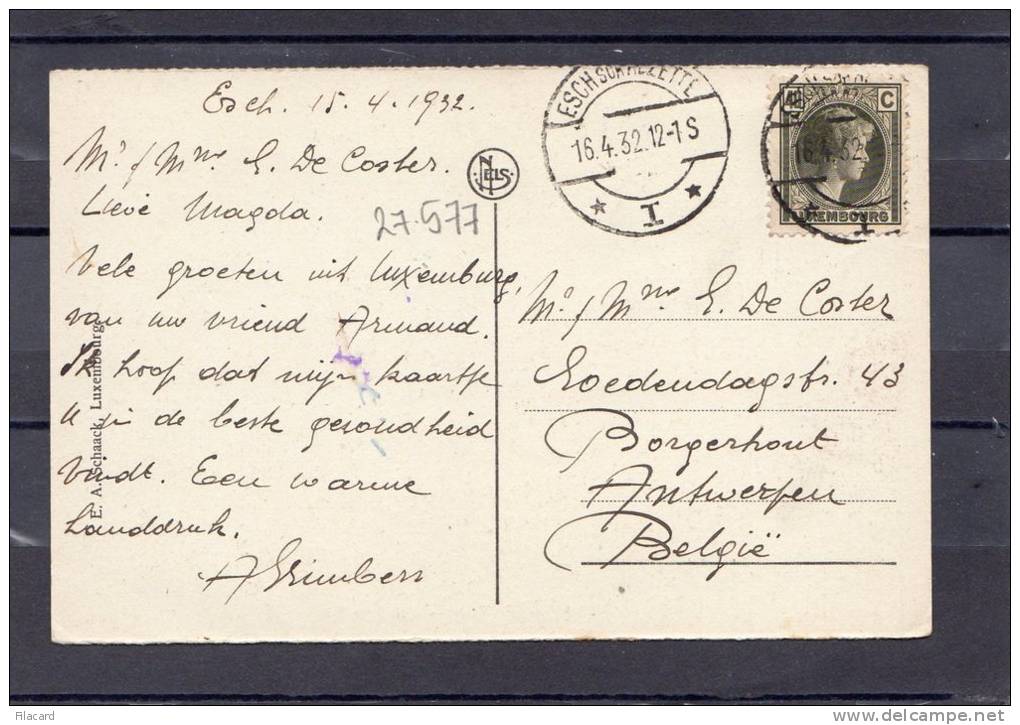 Esch. 15.4.1932.
Mr / Mme E. De Coster.
Lieve Magda.
Vele groeten uit Luxemburg,
van uw vriend Armand.
Ik hoop dat mijn kaartje
u in de beste gezondheid
vindt. Een warme
handdruk.
A
27.577
NELS
E. A. Schaack, Luxembourg
ESCH S/R ALZETTE
16.4.32.12-1 S
I
C
16.4.32
LUXEMBOURG
I
Mr / Mme E. De Coster
Goedendagstr. 43
Borgerhout
Antwerpen
België
Filacard
www.delcampe.net